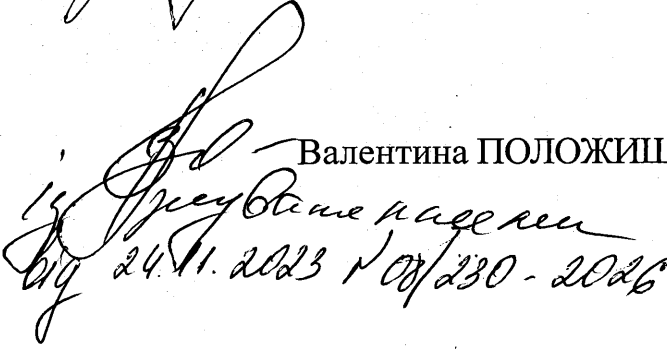 Валентина ПОЛОЖИШ
із зауваженнями
від 24.11.2023 № 08/230-2026